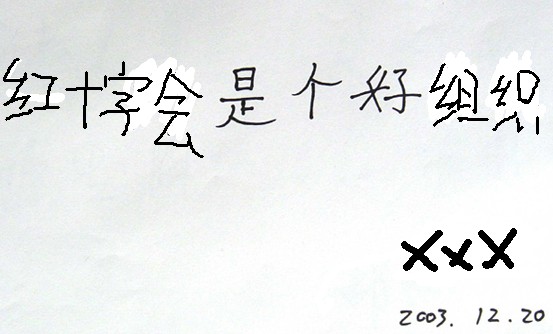 红十字会是个好组织
XxX
2003.12.20